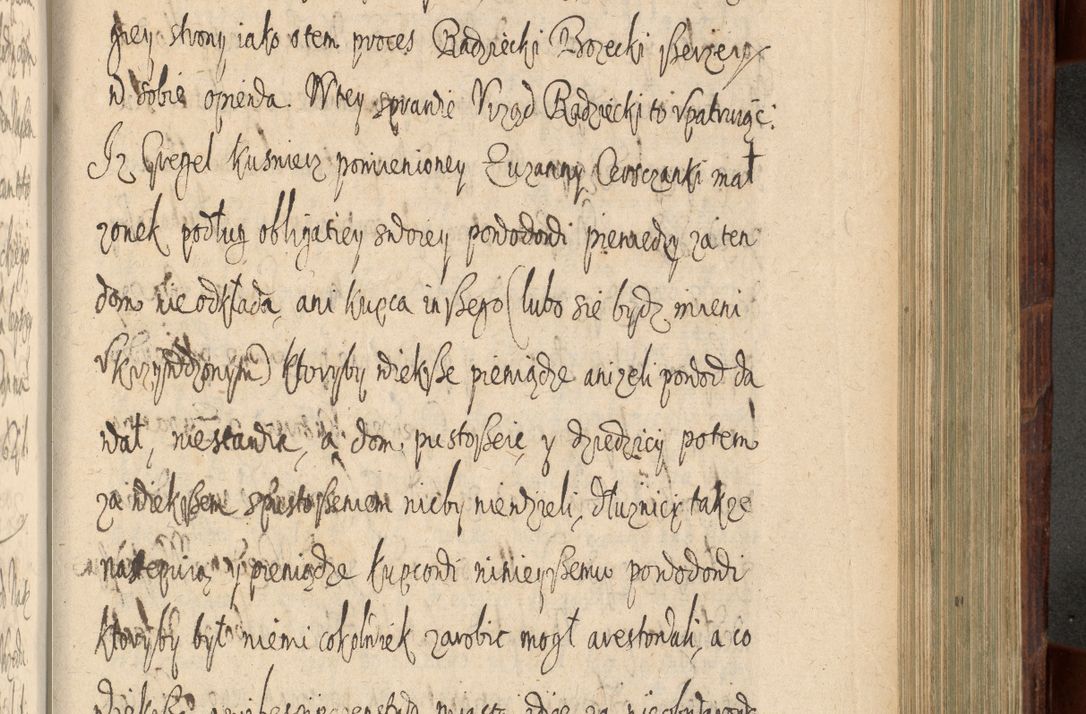 grey strony iako otem proces Radziecki Bożecki sserzey
w sobie opiewa. Wtey sprawie Vrząd Radziecki to vpatruiąc:
Iż Gregel kusnierz pomienioney Zuzanny małżonek
zonek podług obligatiey swoiey powodowi pieniędzy za ten
dom nie odkłada, ani kupca inssego (lubo się bydz mieni
vkrzywdzonym) ktoryby wieksse pieniądze aniżeli powod da
wał, niestawia, a dom pustosseie, y dziedzicy potem
za wiekssem spustosseniem nicby niewzieli, dłuznicy takze
nastepuią y pieniądze kupcowi ninieyssemu powodowi
ktoryby był niemi cokolwiek zarobic mogł arestowali, a co